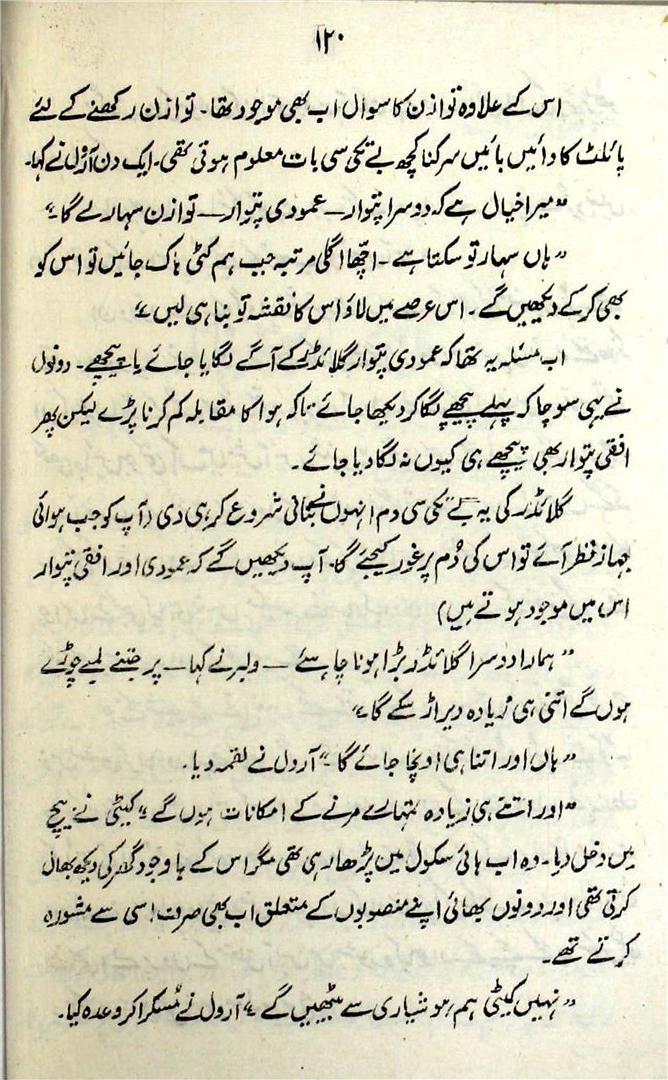 ۱۲۰
اس کے علاوہ توازن کا سوال اب بھی موجود تھا۔ توازن رکھنے کے لئے
پائلٹ کا دائیں بائیں سرکنا کچھ بے تکی سی بات معلوم ہوتی تھی۔ ایک دن آرول نے کہا۔
”میرا خیال ہے کہ دوسرا پتوار — عمودی پتوار — توازن سہارے گا۔“
”ہاں سہار تو سکتا ہے۔ اچھا اگلی مرتبہ جب ہم کٹی ہاک جائیں تو اس کو
بھی کر کے دیکھیں گے۔ اس عرصے میں لاؤ اس کا نقشہ تو بنا ہی لیں۔“
اب مسئلہ یہ تھا کہ عمودی پتوار گلائڈر کے آگے لگایا جائے یا پیچھے۔ دونوں
نے یہی سوچا کہ پہلے پیچھے لگا کر دیکھا جائے تاکہ ہوا کا مقابلہ کم کرنا پڑے لیکن پھر
افقی پتوار بھی پیچھے ہی کیوں نہ لگا دیا جائے۔
گلائڈر کی یہ بے تکی سی دم انہوں نے بنانی شروع کر ہی دی (آپ کو جب ہوائی
جہاز نظر آئے تو اس کی دُم پر غور کیجئے گا۔ آپ دیکھیں گے کہ عمودی اور افقی پتوار
اس میں موجود ہوتے ہیں)
”ہمارا دوسرا گلائڈر بڑا ہونا چاہئے — ولبر نے کہا — پر جتنے لمبے چوڑے
ہوں گے اتنی ہی زیادہ دیر اڑ سکے گا۔“
”ہاں اور اتنا ہی اونچا جائے گا۔“ آرول نے لقمہ دیا۔
”اور اتنے ہی زیادہ تمہارے مرنے کے امکانات ہوں گے۔“ کیٹی نے بیچ
میں دخل دیا۔ وہ اب ہائی سکول میں پڑھا رہی تھی مگر اس کے باوجود گھر کی دیکھ بھال
کرتی تھی اور دونوں بھائی اپنے منصوبوں کے متعلق اب بھی صرف اسی سے مشورہ
کرتے تھے۔
”نہیں کیٹی ہم ہوشیاری سے بیٹھیں گے۔“ آرول نے مُسکرا کر وعدہ کیا۔